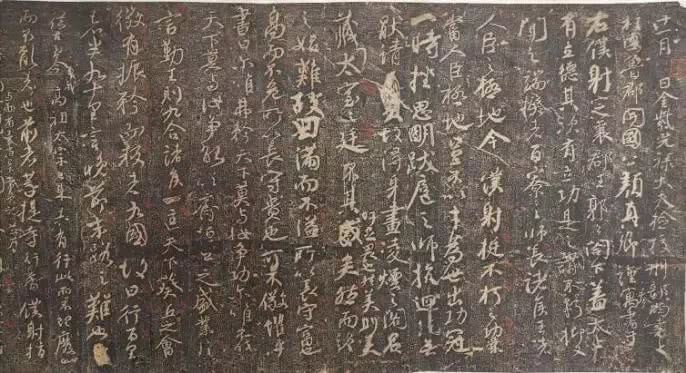 十一月日金紫光祿大夫檢校刑部尚書上
柱國魯郡開國公顏真卿謹奉書于
右僕射定襄郡王郭公閤下蓋太上
有立德其次有立功是之謂不朽抑又
聞之端揆者百寮之師長諸侯王者
人臣之極地今僕射挺不朽之功業
當人臣極地豈不以才為世出功冠
一時挫思明跋扈之師抗迴紇無
厭之請故得身畫凌煙之閣名
藏太室之廷吁足畏也然美則美矣而終
之始難故曰滿而不溢所以長守富也
高而不危所以長守貴也可不儆懼乎
書曰爾唯弗矜天下莫與汝爭功爾唯不伐
天下莫與汝爭能以齊桓公之盛業片
言勤王則九合諸侯一匡天下葵丘之會
微有振矜而叛者九國故曰行百里
者半九十里言晚節末路之難也
從古至今暨我高祖太宗已來未有行此而不理廢此
而不亂者也前者菩提寺行香僕射指